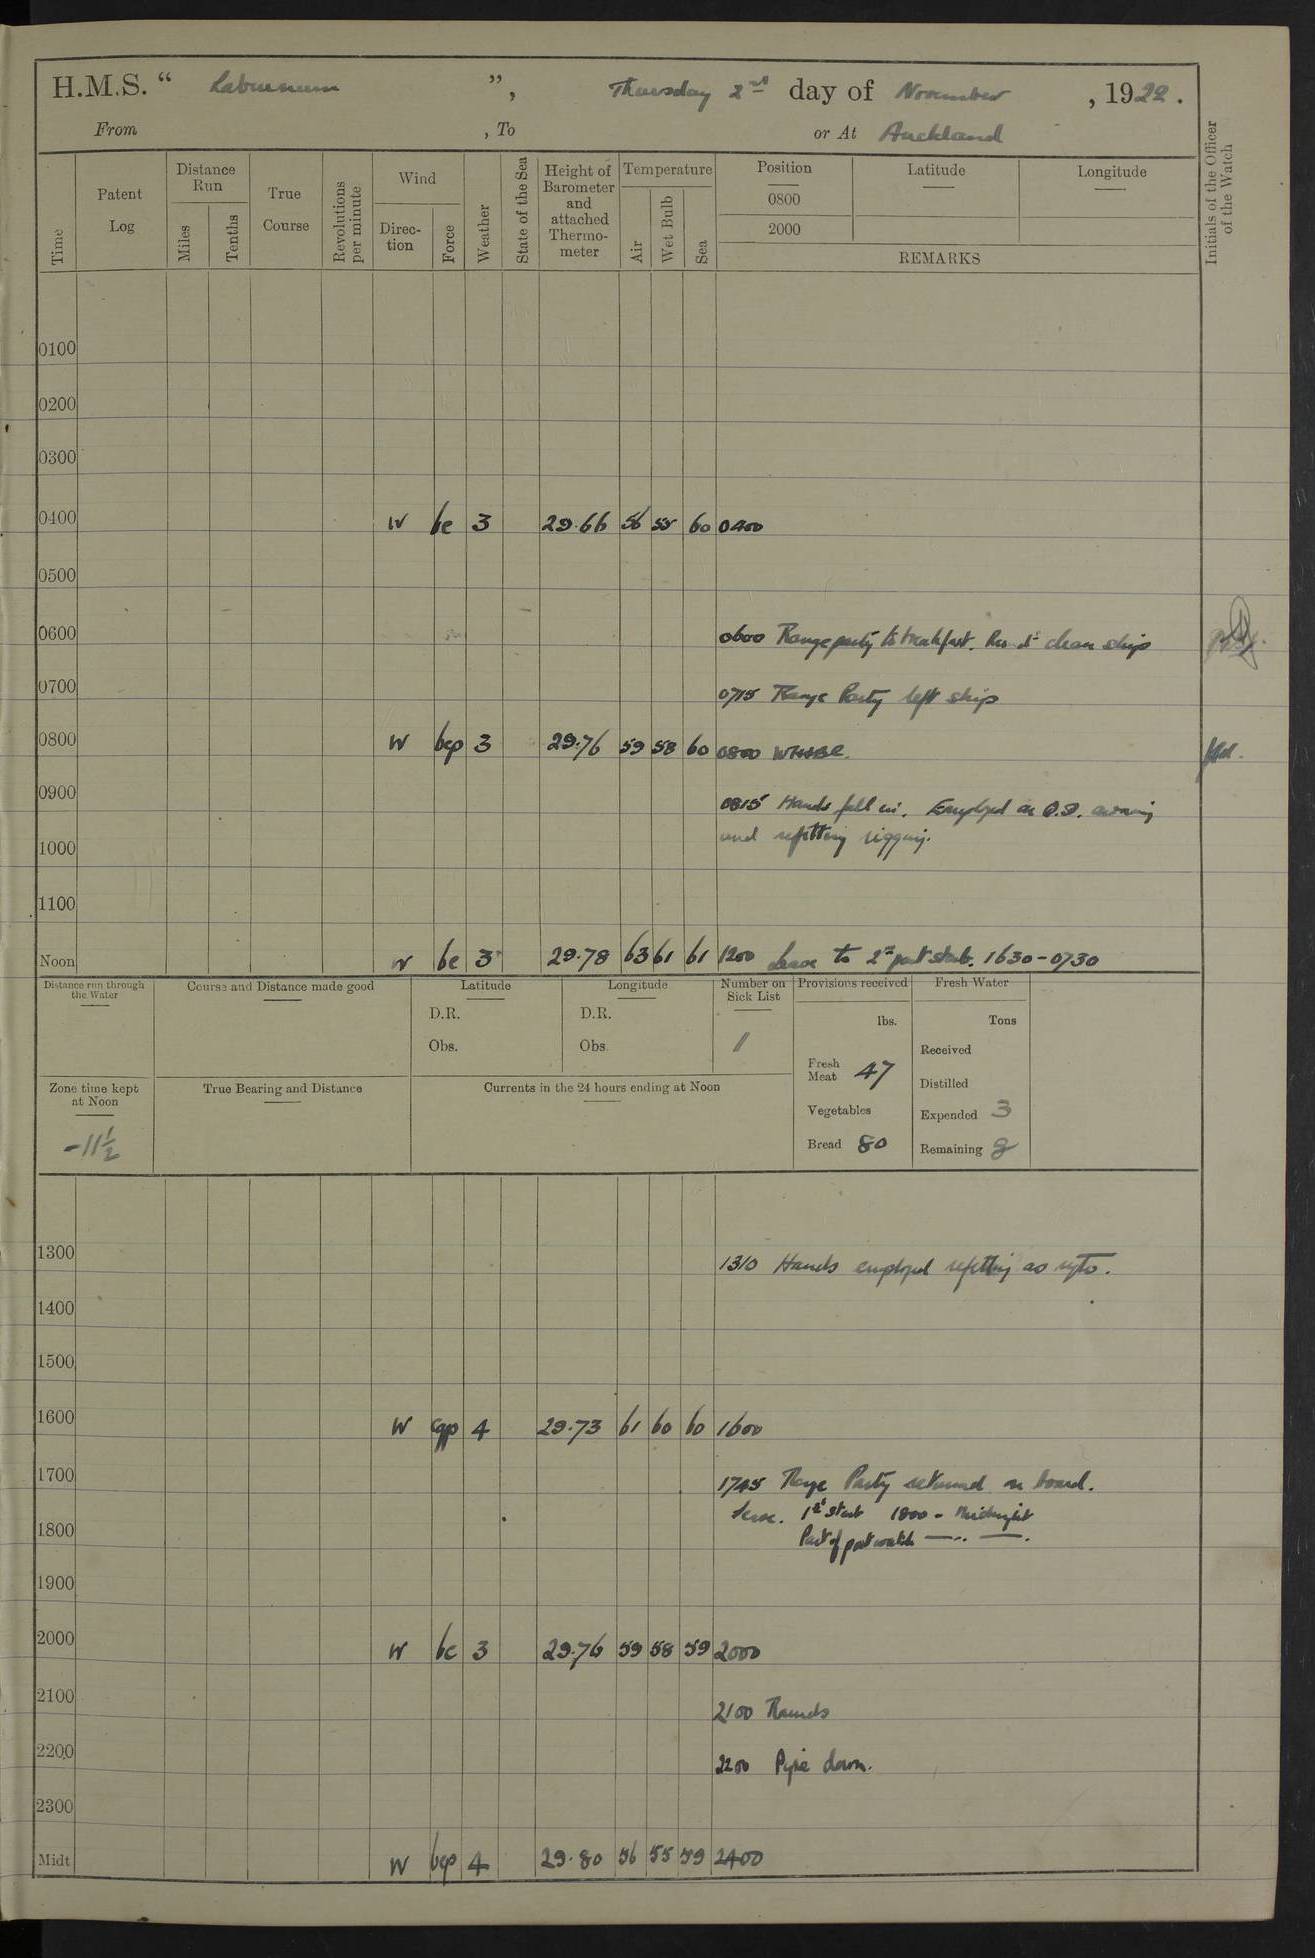 H.M.S. “ Laburnum ”, Thursday 2nd day of November, 1922.
From , To or At Auckland
Time
Patent Log
Distance Run
Miles
Tenths
True Course
Revolutions per minute
Wind
Direction
Force
Weather
State of the Sea
Height of Barometer and attached Thermometer
Temperature
Air
Wet Bulb
Sea
Position
0800
2000
Latitude
Longitude
REMARKS
Initials of the Officer of the Watch
0100
0200
0300
0400 W bc 3 29.66 56 55 60 0400
0500
0600 0600 Range party to breakfast. clean ship
0700 0715 Range Party left ship
0800 W bcp 3 29.76 59 58 60 0800
0900 0815 Hands fell in. Employed on Q.D. awning
and refitting rigging.
1000
1100
Noon W bc 3 29.78 63 61 61 1200 Leave to 2nd part stab. 1630-0730
Distance run through the Water
Course and Distance made good
Latitude
D.R.
Obs.
Longitude
D.R.
Obs.
Number on Sick List
11
Provisions received
lbs.
Fresh Meat 47
Vegetables
Bread 80
Fresh Water
Tons
Received
Distilled
Expended 3
Remaining 8
Zone time kept at Noon
-11½
True Bearing and Distance
Currents in the 24 hours ending at Noon
1300 1310 Hands employed refitting as
1400
1500
1600 W cqp 4 29.73 61 60 60 1600
1700 1745 Range Party returned on board.
Leave. 1st Stab 1800 - Midnight
1800 Part of port watch —..—.
1900
2000 W bc 3 29.76 59 58 59 2000
2100 2100 Rounds
2200 2200 Pipe down.
2300
Midt W bcp 4 29.80 56 55 59 2400